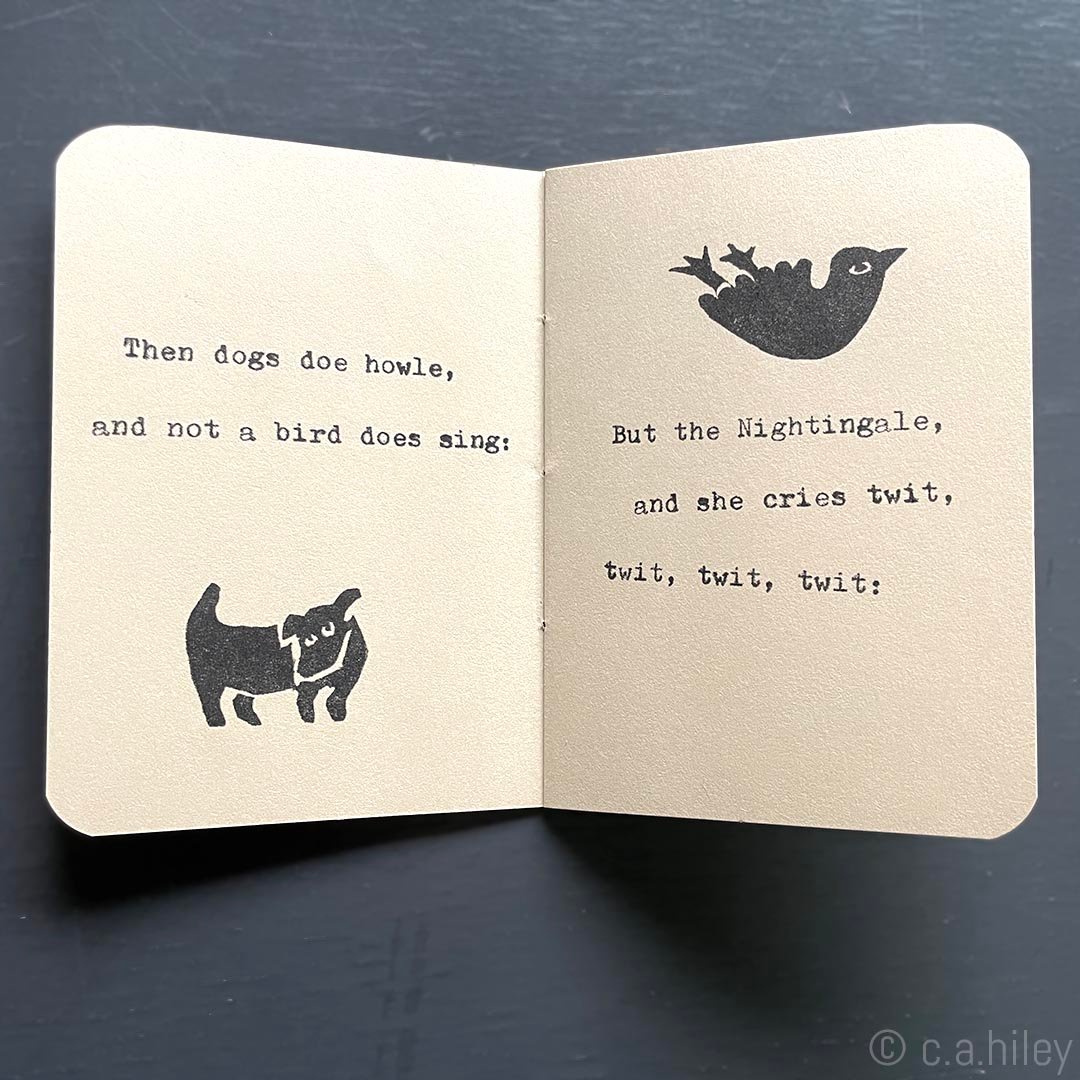 Then dogs doe howle,
and not a bird does sing:
But the Nightingale,
and she cries twit,
twit, twit, twit:
© c.a.hiley